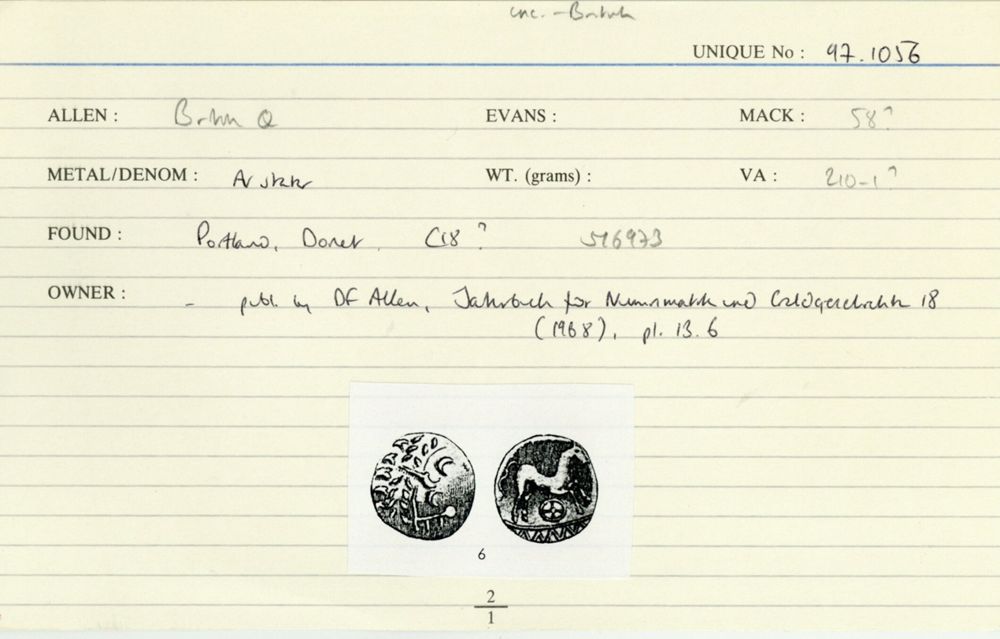 unc. - British
UNIQUE No : 97.1056
ALLEN : British Q EVANS : MACK : 58?
METAL/DENOM : AV stater WT. (grams) : VA : 210-1?
FOUND : Portland, Dorset, C18? SY6973
OWNER : - publ. by DF Allen, Jahrbuch für Numismatik und Geldgeschichte 18
(1968), pl. 13.6
6
2
1